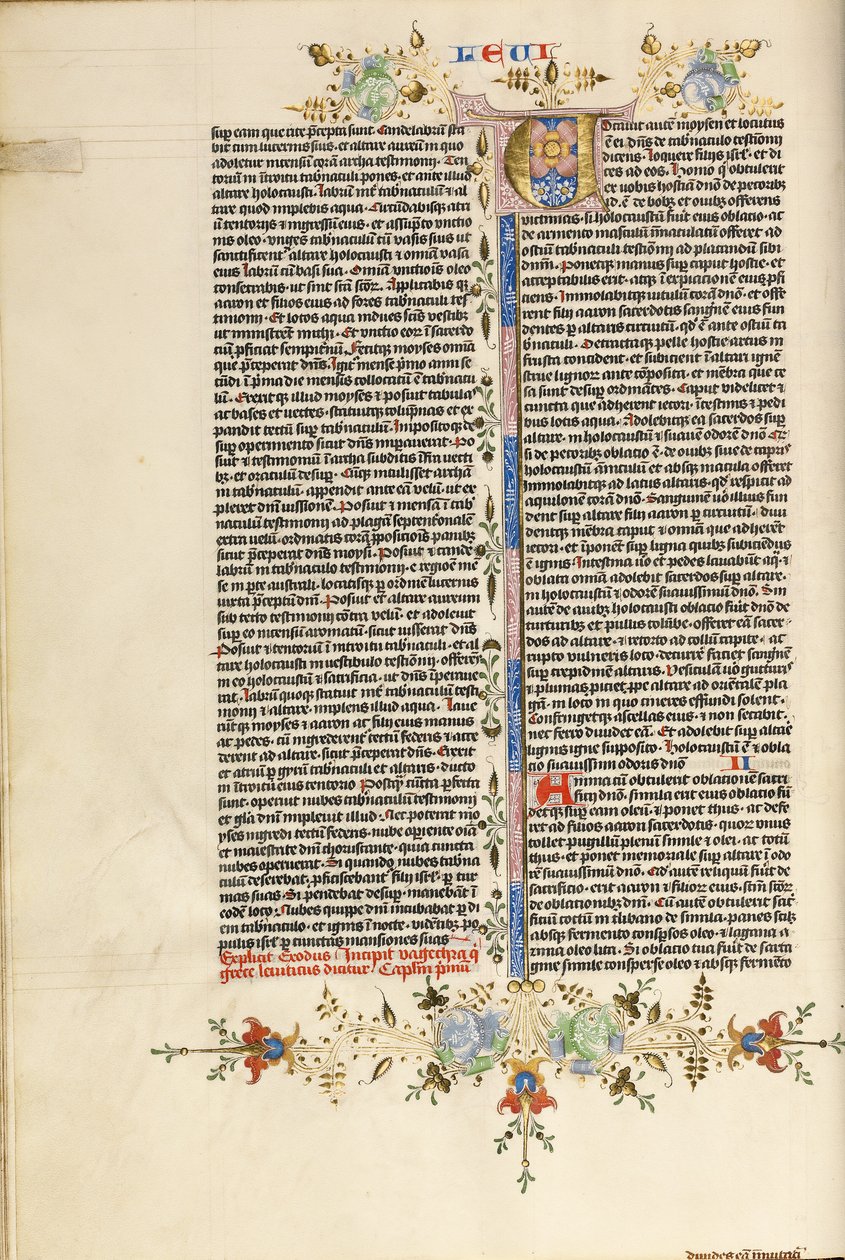 LEVI
suꝑ eam que rite p̄cepta sunt. Candelabrū sta
bit cum lucernis suis. et altare aureū in quo
adoletur incensū corā archa testimonij. Ten
toriū in ītroitu tabn̄aculi pones. et ante illud
altare holocausti. labrū int̄ tabn̄aculū ⁊ al
tare quod implebis aqua. Circūdabisq̄ atri
ū tentorijs ⁊ ingressū eius. et assūpto vnctio
nis oleo. vnges tabn̄aculū cū vasis suis ut
sanctificent̄. altare holocausti ⁊ omīa vasa
eius labrū cū basi sua. Omīa vnctiōis oleo
consecrabis. ut sint scā scōꝝ. Applicabis q̄
aaron et filios eius ad fores tabn̄aculi tes
timonij. Et lotos aqua indues scīs vestibꝫ
ut ministrent michi. Et vnctio eoꝝ ī sacerdo
ciū ꝓficiat sempit̄nū. Fecitq̄ moyses omīa
que p̄ceperat dn̄s. Igit̄ mense p̄mo anni se
cūdi ī p̄ma die mensis collocatū ē tabn̄acu
lū. Erexitq̄ illud moyses ⁊ posuit tabulas
ac bases et vectes. statuitq̄ colūpnas et ex
pandit tectū suꝑ tabn̄aculū. Inpositoq̄ de
suꝑ operimento sicut dn̄s imꝑauerat. Po
suit ⁊ testimoniū ī archa subditis īfra vecti
bꝫ. et oraculū desuꝑ. Cūq̄ intulisset archā
in tabn̄aculū. appendit ante eā velū. ut ex
pleret dn̄i iussionē. Posuit ⁊ mensā ī tab
naculū testimonij ad plagā septentōnalē
extra velū. ordinatis corā ꝓposicōnis panibꝫ
sicut p̄ceperat dn̄s moysi. Posuit ⁊ cande
labrū in tabn̄aculo testimonij. e regiōe mē
se in ꝑte australi. locatisq̄ ꝑ ordinē lucernis
iuxta p̄ceptū dn̄i. Posuit et altare aureum
sub tecto testimonij cōtra velū. et adoleuit
suꝑ eo incensū aromatū. sicut iusserat dn̄s
Posuit ⁊ tentoriū ī introitu tabn̄aculi. et al
tare holocausti in vestibulo testiōnij. offerēs
in eo holocaustū ⁊ sacrificia. ut dn̄s īperaue
rat. labrū quoq̄ statuit int̄ tabn̄aculū testi
monij ⁊ altare. implens illud aqua. Laue
rūtq̄ moyses ⁊ aaron ac filij eius manus
ac pedes. cū ingrederent̄ tectū federis ⁊ acce
derent ad altare. sicut p̄ceperat dn̄s. Erexit
et atriū ꝑ gyrū tabn̄aculi et altaris. ducto
in ītroitu eius tentorio. Postq̄ cūcta ꝑfecta
sunt. operuit nubes tabn̄aculū testimonij
et glā dn̄i impleuit illud. Nec poterat mo
yses ingredi tectū federis. nube oꝑiente oīa
et maiestate dn̄i choruscante. quia cuncta
nubes operuerat. Si quando nubes tabna
culū deserebat. ꝓficiscebant̄ filij isrl̄. ꝑ tur
mas suas. Si pendebat desuꝑ. manebāt ī
eodē loco. Nubes quippe dn̄i incubabat ꝑ di
em tabn̄aculo. et ignis ī nocte. videntibꝫ po
pulis isrl̄. ꝑ cunctas mansiones suas
Explicit Exodus Incipit vagechra q̄
grece leuiticus dicitur Caplm̄ primū
Vocauit autē moysen et locutus
ē ei dn̄s de tab̄naculo testiōnij
dicens. Loquere filijs isrl̄. et di
ces ad eos. Homo q̄ obtulerit
ex uobis hostiā dn̄o de pecoribꝫ
id. ē. de bobꝫ et ouibꝫ offerens
victimas. si holocaustū fuīt eius oblatio. ac
de armento masculū īmaculatū offeret ad
ostiū tab̄naculi testiōnij ad placandū sibi
dn̄m. Ponetq̄ manus suꝑ caput hostie. et
acceptabilis erit. atq̄ ī expiacionē eius ꝓfi
ciens. Immolabitq̄ uitulū corā dn̄o. et offe
rent filij aaron sacerdotis sangnēē eius fun
dentes ꝑ altaris circuitū. qd̄ ē ante ostiū ta
bnaculi. Detractaq̄ pelle hostie artus in
frusta concident. et subicient ī altari ignē
strue lignoꝝ ante cōposita. et mēbra que ce
sa sunt desuꝑ ordinātes. Caput videlicet ⁊
cuncta que adherent iecori. ītestinis ⁊ pedi
bus lotis aqua. Adolebitq̄ ea sacerdos suꝑ
altare. in holocaustū ⁊ suauē odorē dn̄o Qr̄
si de pecoribꝫ oblatio ē. de ouibꝫ siue de capris
holocaustū āniculū et absq̄ macula offeret
immolabitq̄ ad latus altaris. qd̄ respicit ad
aquilonē corā dn̄o. Sanguinē uō illius fun
dent suꝑ altare filij aaron ꝑ circuitū. diui
dentq̄ mēbra caput ⁊ omīa que adherēt
iecori. et īponēt suꝑ ligna quibꝫ subiciēdus
ē ignis Intestina uō et pedes lauabūt aq̄. ⁊
oblata omīa adolebit sacerdos suꝑ altare.
in holocaustū ⁊ odorē suauissimū dn̄o. Sin
autē de auibꝫ holocausti oblatio fuīt dn̄o de
turturibꝫ et pullis colūbe. offeret eā sacer
dos ad altare. ⁊ retorto ad collū capite. ac
rupto vulneris loco. decurre faciet sangnē
suꝑ crepidinē altaris. Vesiculā uō gutturis
⁊ plumas ꝓiciet ꝓpe altare ad oriētalē pla
gā. in loco in quo cineres effundi solent.
Confringetq̄ ascellas eius. ⁊ non secabit.
nec ferro diuidet eā. Et adolebit suꝑ altaē
lignis igne supposito. Holocaustū ē ⁊ obla
tio suauissimi odoris dn̄o II
Anima cū obtulerit oblationē sacri
ficij dn̄o. simila erit eius oblatio fū
detq̄ suꝑ eam oleū. ⁊ ponet thus. ac defe
ret ad filios aaron sacerdotis. quoꝝ vnus
tollet pugillū plenū simile ⁊ olei. ac totū
thus. et ponet memoriale suꝑ altare ī odo
rē suauissimū dn̄o. Qd̄ autē reliquū fuīt de
sacrificio. erit aaron ⁊ filioꝝ eius. scm̄ scōꝝ
de oblationibꝫ dn̄i. Cū autē obtulerit sac̄i
ficiū coctū in clibano de simila. panes scilꝫ
absq̄ fermento conspsos oleo. ⁊ lagana a
zima oleo lita. Si oblatio tua fuīt de sarta
gine simile consperse oleo ⁊ absq̄ fermēto
diuides eā minutati